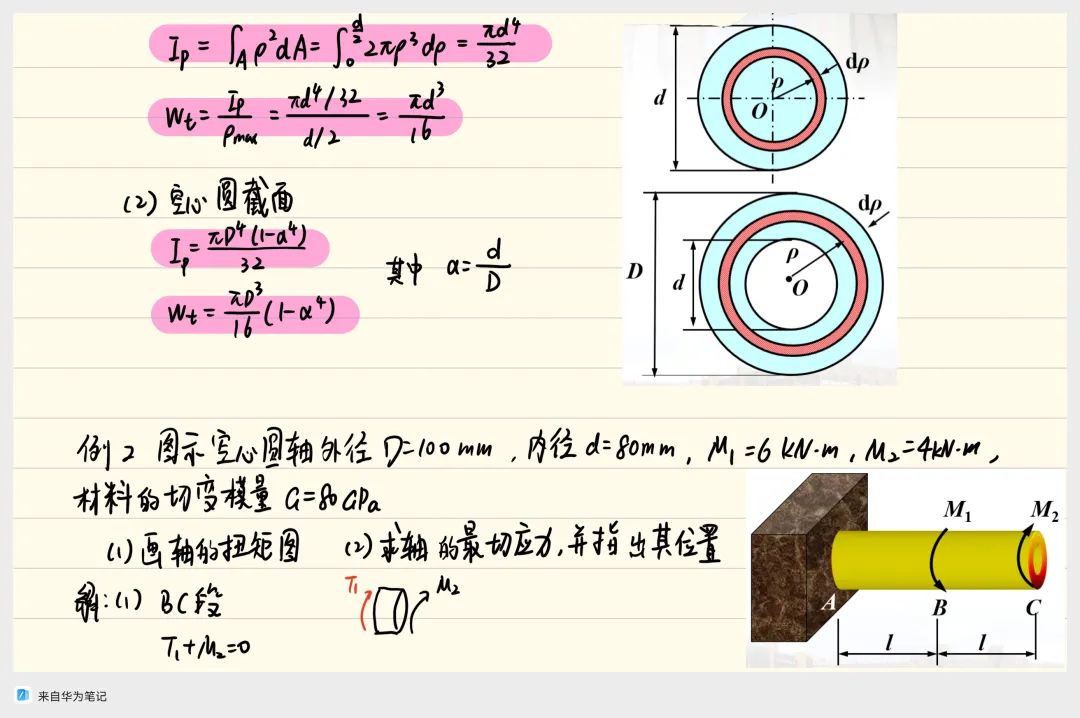 Ip = ∫A ρ²dA = ∫₀^(d/2) 2πρ³dρ = πd⁴/32
dρ
ρ
d
O
Wt = Ip/ρmax = (πd⁴/32)/(d/2) = πd³/16
(2) 空心圆截面
Ip = πD⁴(1-α⁴)/32
其中 α = d/D
Wt = πD³/16 (1-α⁴)
dρ
ρ
D
d
O
例2 图示空心圆轴外径D=100mm,内径d=80mm,M₁=6kN·m,M₂=4kN·m,
材料的切变模量 G=80GPa
(1) 画轴的扭矩图 (2) 求轴的最切应力,并指出其位置
解:(1) BC段
T₁ M₂
T₁+M₂=0
M₁ M₂
A B C
l l
来自华为笔记